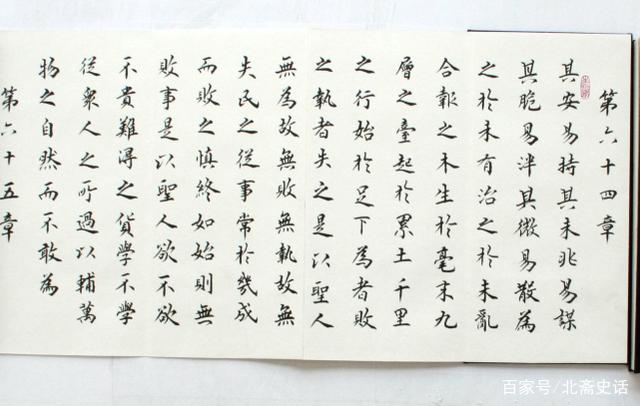 第六十四章
其安易持其未兆易謀
其脆易泮其微易散為
之於未有治之於未亂
合報之木生於毫末九
層之臺起於累土千里
之行始於足下為者敗
之執者失之是以聖人
無為故無敗無執故無
失民之從事常於幾成
而敗之慎終如始則無
敗事是以聖人欲不欲
不貴難得之貨學不學
從衆人之所過以輔萬
物之自然而不敢為
第六十五章
百家号/北斋史话